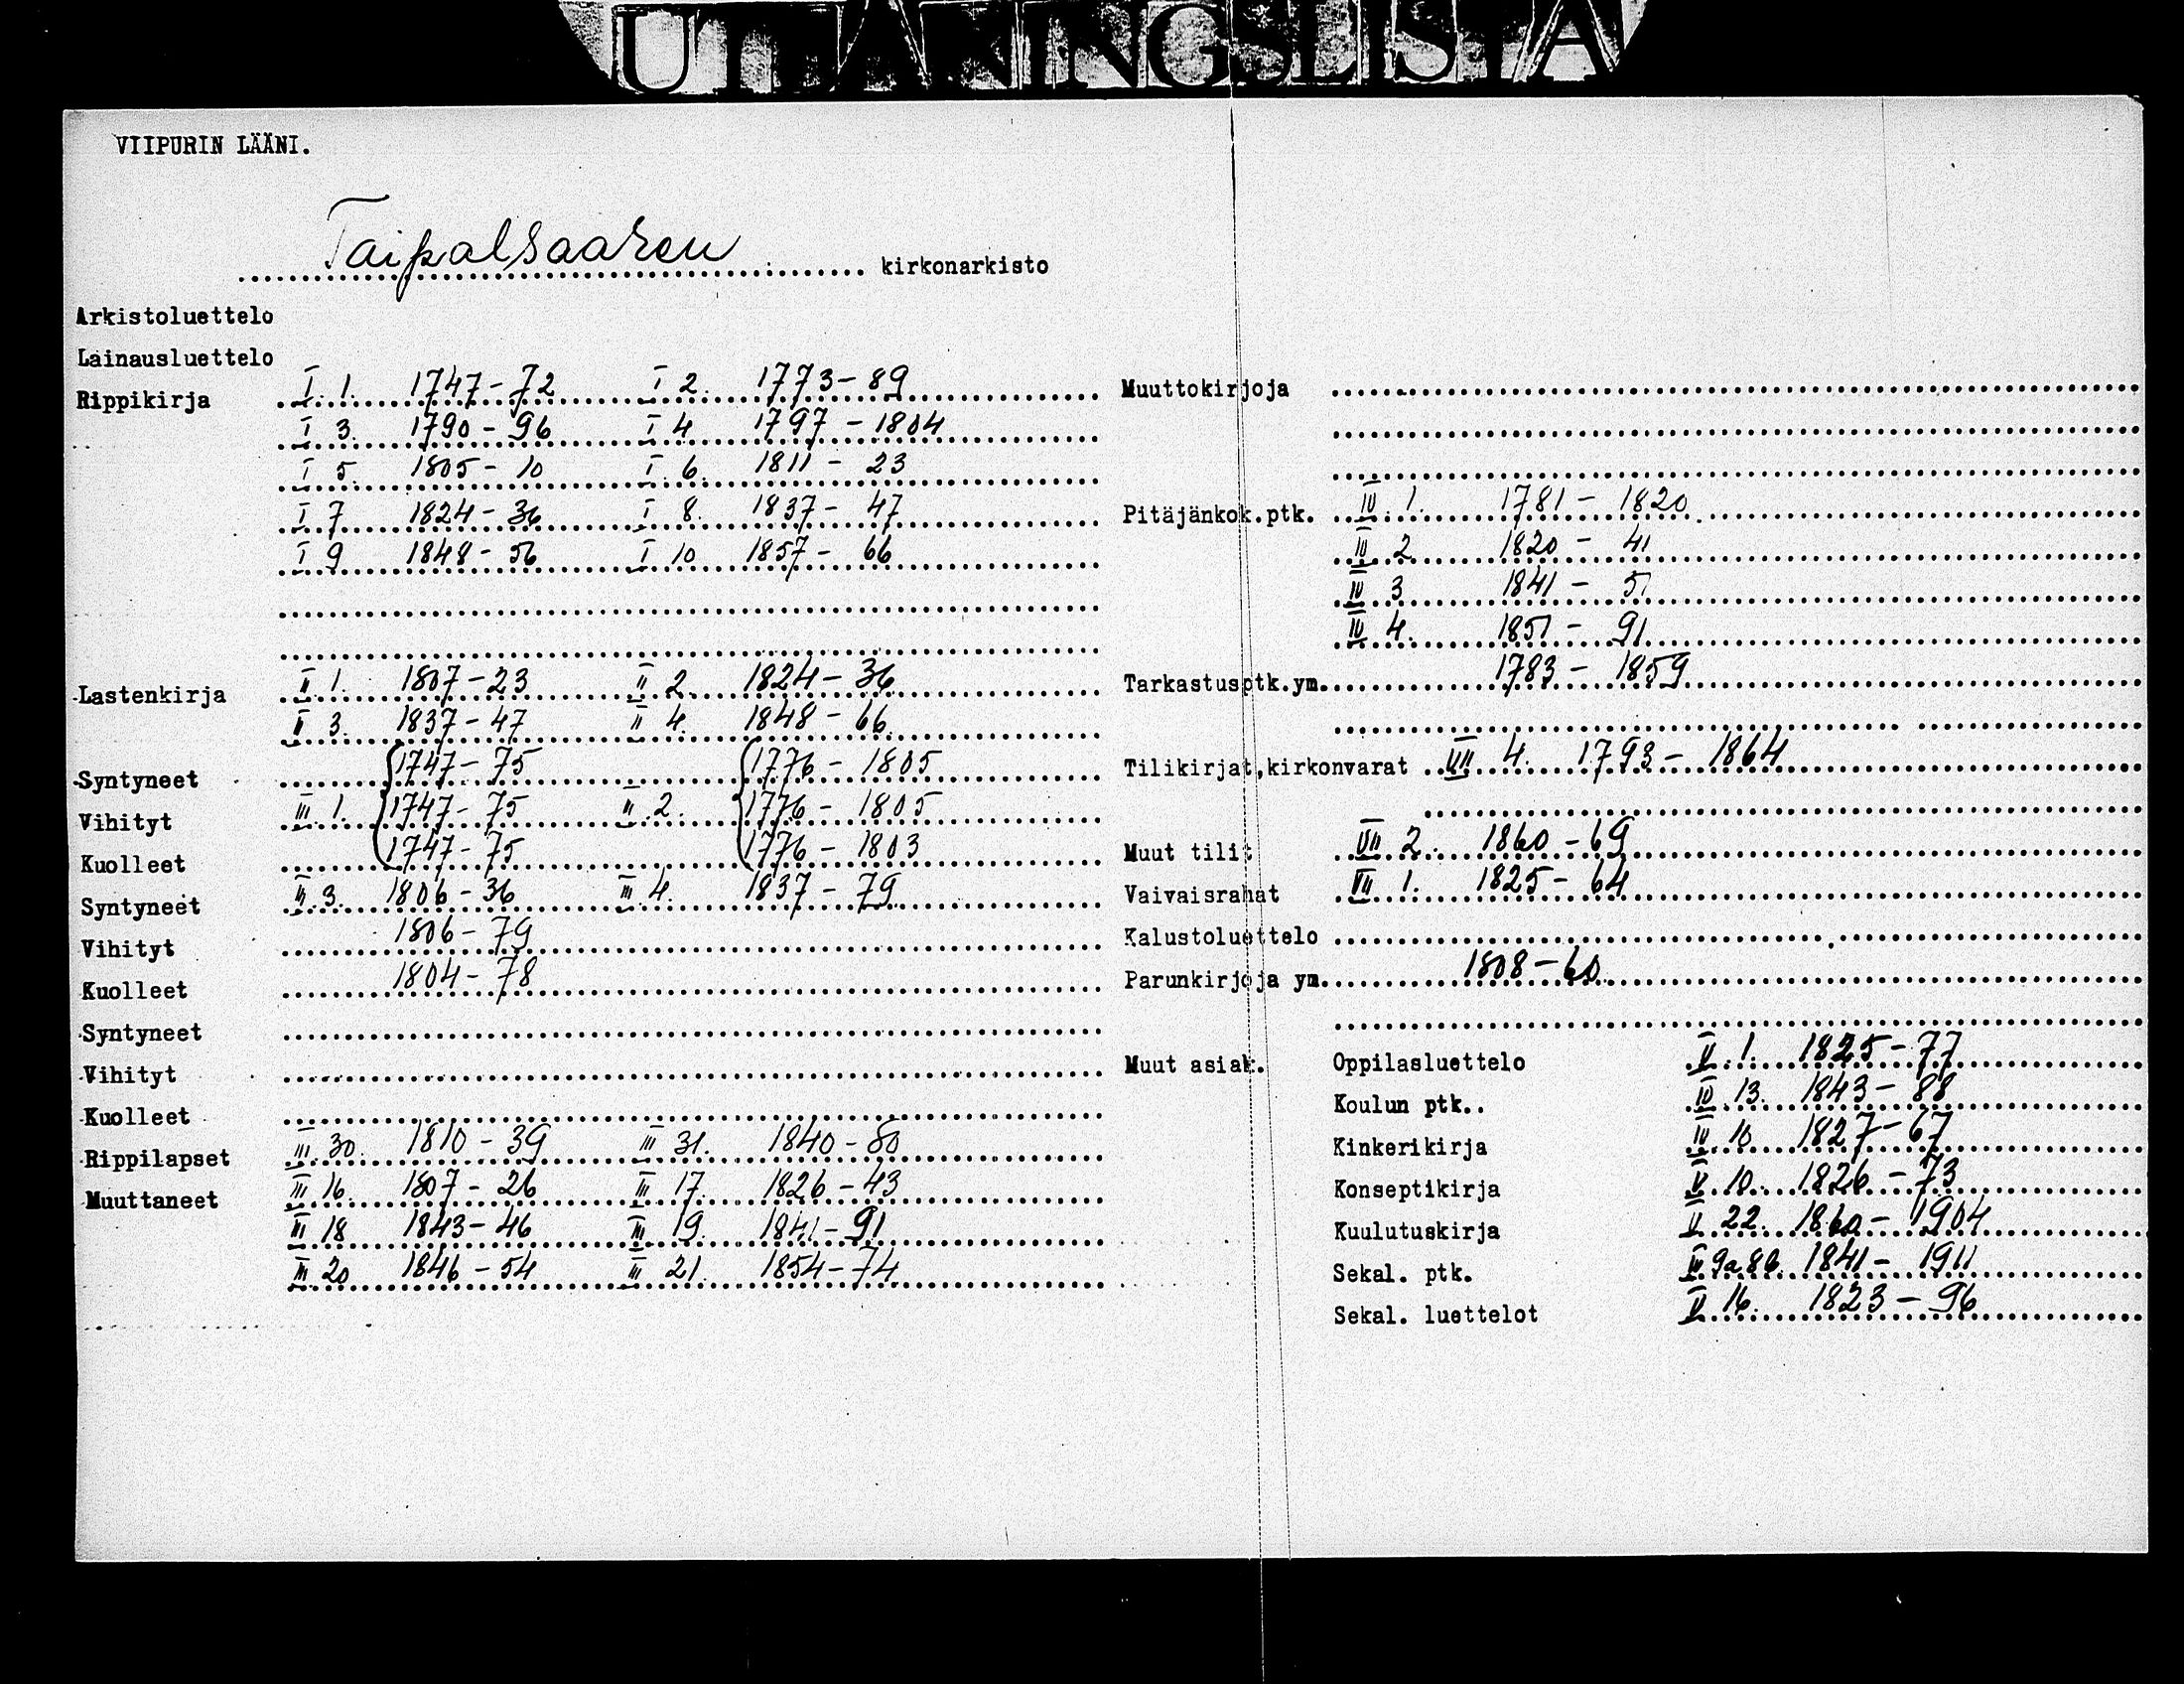 UTLÅNINGSLISTA
VIIPURIN LÄÄNI.
Taipalsaaren kirkonarkisto
Arkistoluettelo
Lainausluettelo
Rippikirja I. 1. 1747-72 I 2. 1773-89
I 3. 1790-96 I 4 1797-1804
I 5. 1805-10 I 6. 1811-23
I 7 1824-36 I 8. 1837-47
I 9 1848-56 I 10 1857-66
Lastenkirja II 1. 1807-23 II 2. 1824-36
II 3. 1837-47 II 4. 1848-66
Syntyneet 1747-75 1776-1805
Vihityt III. 1. 1747-75 II. 2. 1776-1805
Kuolleet 1747-75 1776-1803
Syntyneet III 3. 1806-36 III 4. 1837-79
Vihityt 1806-79
Kuolleet 1804-78
Syntyneet
Vihityt
Kuolleet
Rippilapset III 30. 1810-39 III 31. 1840-80
Muuttaneet III 16. 1807-26 III 17. 1826-43
III 18 1843-46 III 19. 1841-91
III 20 1846-54 III 21. 1854-74
Muuttokirjoja
Pitäjänkok.ptk. IV. 1. 1781-1820
IV 2 1820-41
IV 3 1841-51
IV 4. 1851-91
Tarkastusptk.ym. 1783-1859
Tilikirjat,kirkonvarat VII 4. 1793-1864
Muut tilit VII 2. 1860-69
Vaivaisrahat VII 1. 1825-64
Kalustoluettelo
Parunkirjoja ym. 1808-60
Muut asiak. Oppilasluettelo V. 1. 1825-77
Koulun ptk.. IV. 13. 1843-88
Kinkerikirja IV 10 1827-67
Konseptikirja V. 10. 1826-73
Kuulutuskirja V 22. 1860-1904
Sekal. ptk. 1841-1911
Sekal. luettelot V 16. 1823-96